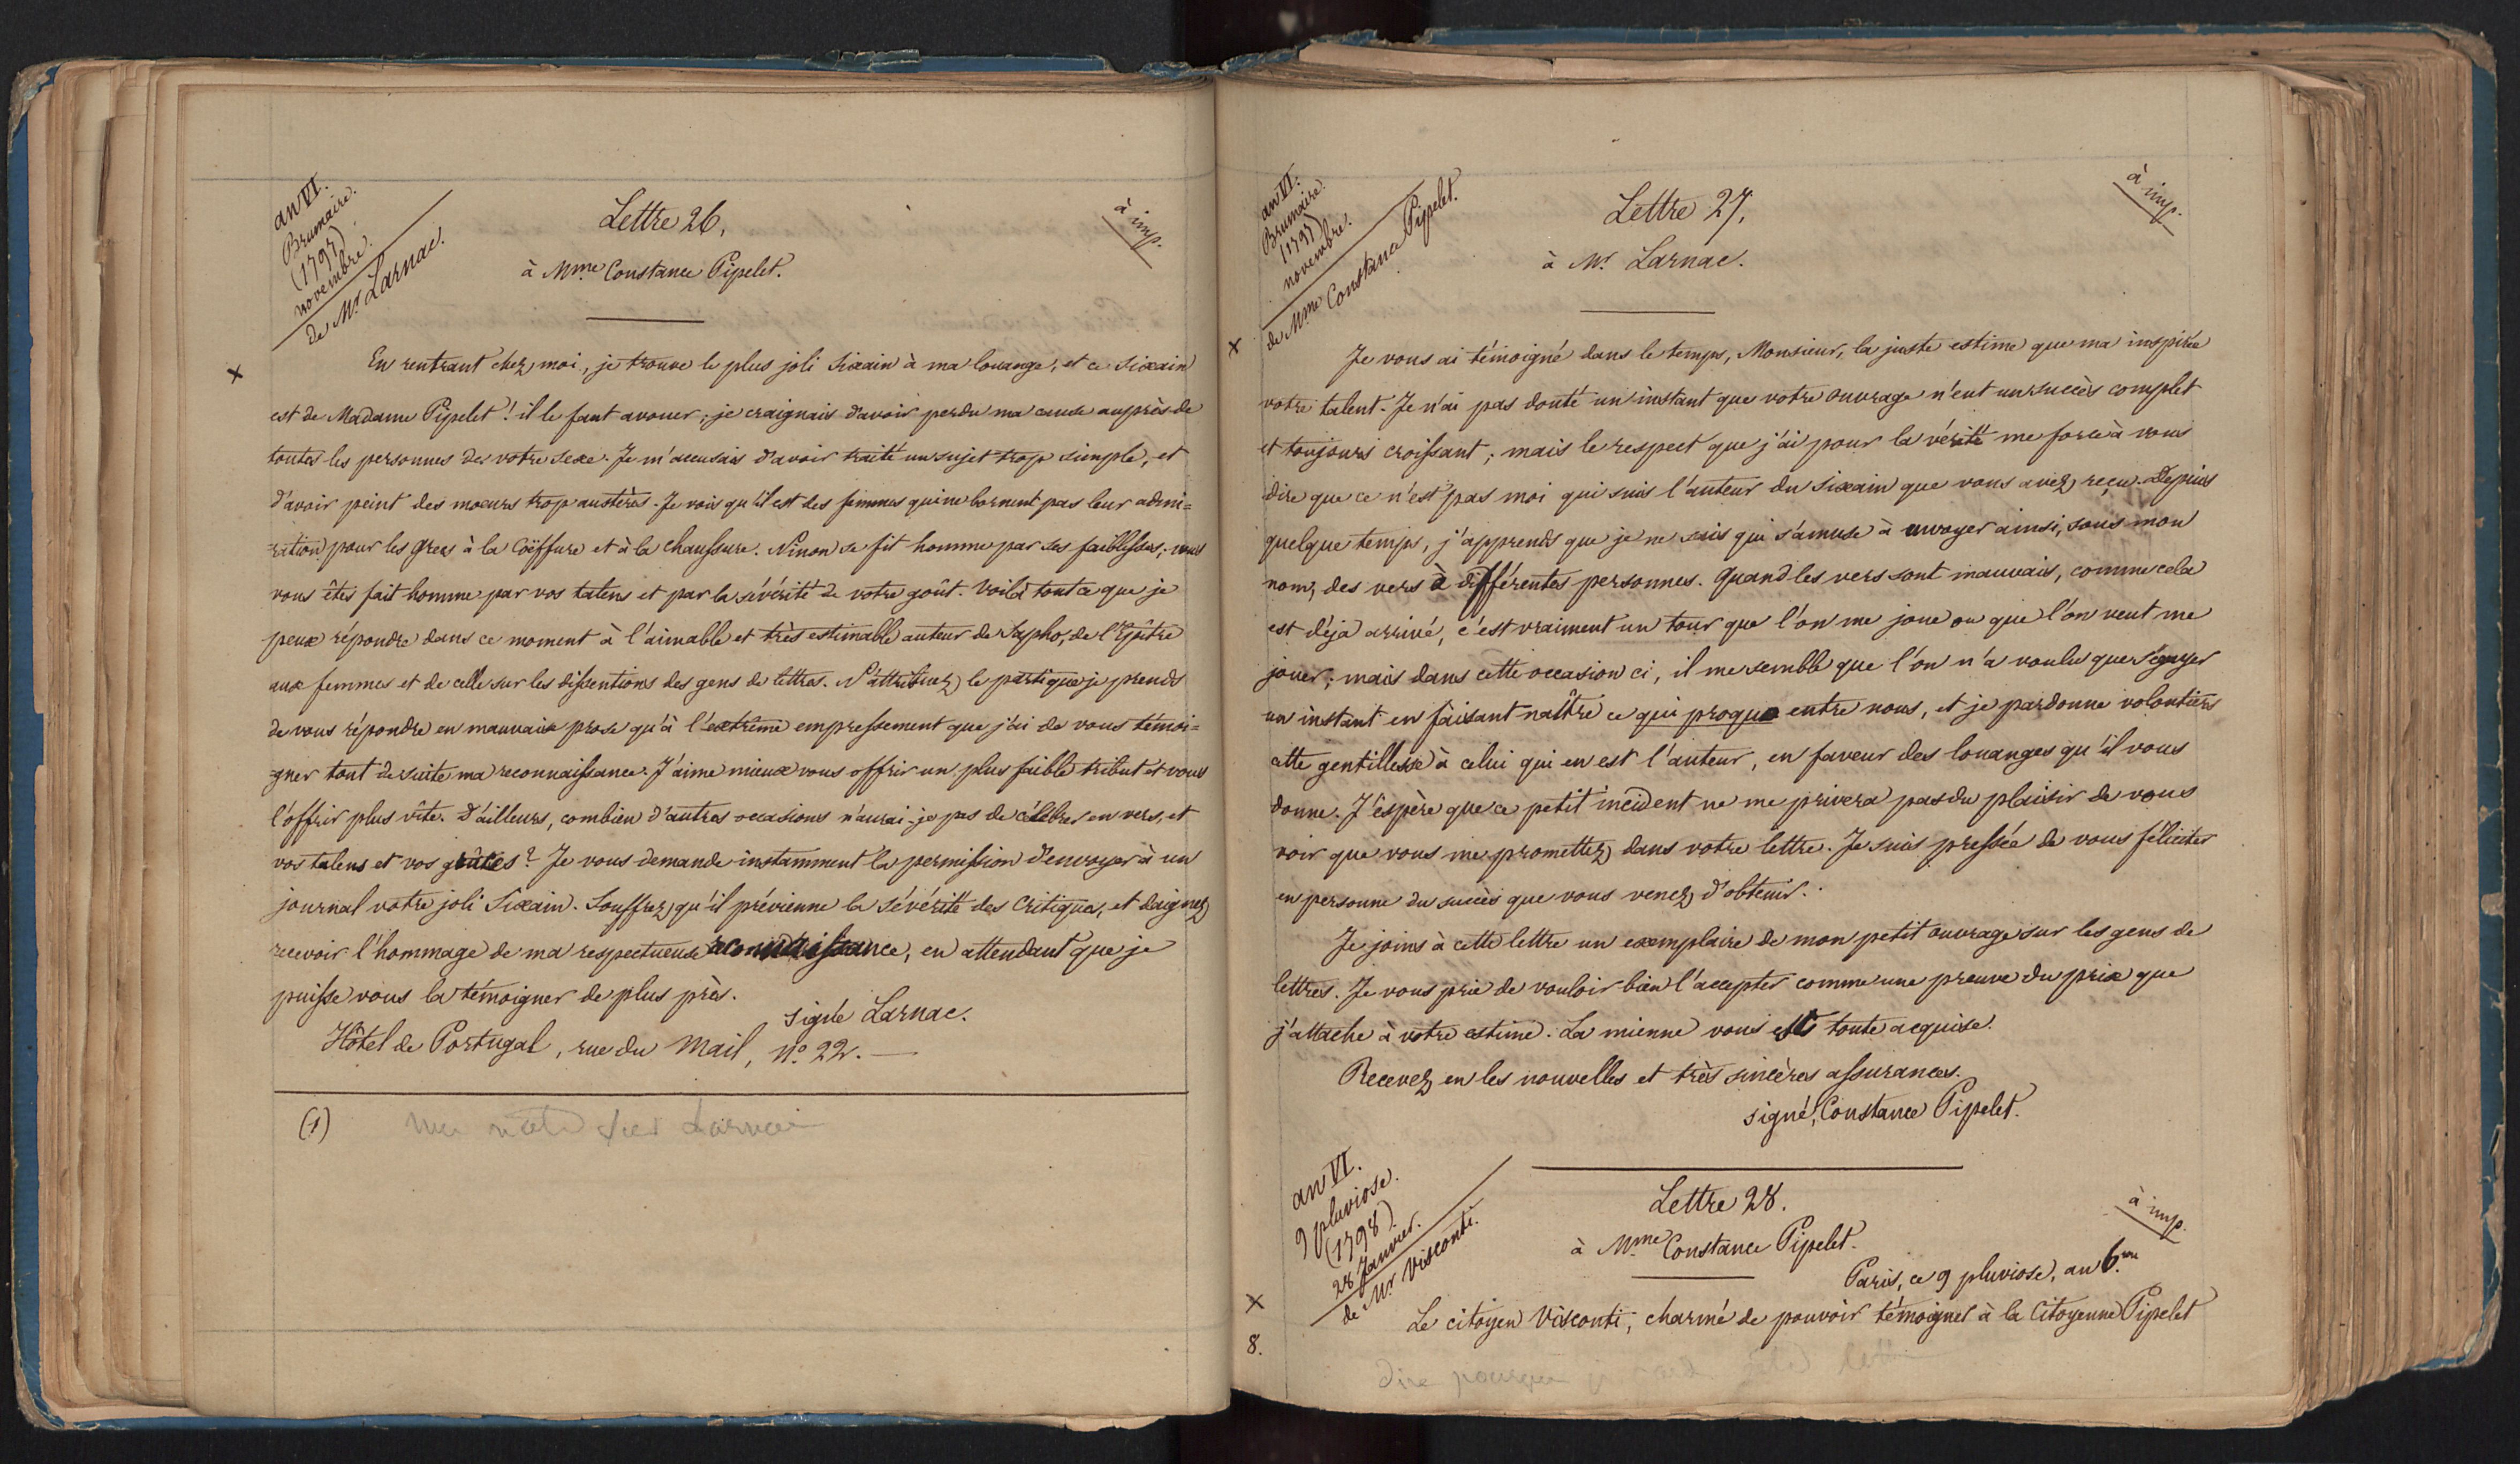 an VI.
Brumaire.
(1797)
novembre.
de Mr Larnac.
à imp.
Lettre 26,
à Mme Constance Pipelet.
x
En rentrant chez moi, je trouve le plus joli sixain à ma louange, et ce sixain
est de Madame Pipelet ! il le faut avouer, je craignais d'avoir perdu ma cause auprès de
toutes les personnes de votre sexe. Je m'accusais d'avoir traité un sujet trop simple, et
d'avoir peint des moeurs trop austères. Je vois qu'il est des femmes qui ne bornent pas leur admi=
=ration pour les Grecs à la Coëffure et à la chaussure. Ninon se fit homme par ses faiblesses; vous
vous êtes fait homme par vos talens et par la sévérité de votre goût. Voilà tout ce que je
peux répondre dans ce moment à l'aimable et très estimable auteur de Sapho, de l'Epître
aux femmes et de celle sur les dissentions des gens de lettres. N'attribuez le parti que je prends
de vous répondre en mauvaise prose qu'à l'extrême empressement que j'ai de vous témoi=
=gner tout de suite ma reconnaissance. J'aime mieux vous offrir un plus faible tribut et vous
l'offrir plus vîte. D'ailleurs, combien d'autres occasions n'aurai-je pas de célébrer en vers, et
vos talens et vos grâces ? Je vous demande instamment la permission d'envoyer à un
journal votre joli Sixain. Souffrez qu'il prévienne la sévérité des Critiques, et daignez
recevoir l'hommage de ma respectueuse reconnaissance, en attendant que je
puisse vous la témoigner de plus près.
signé Larnac.
Hôtel de Portugal, rue du Mail, no. 22. —
(1) une note sur Larnac
an VI.
Brumaire.
(1797)
novembre.
de Mme Constance Pipelet.
à imp.
Lettre 27,
à Mr. Larnac.
x
Je vous ai témoigné dans le temps, Monsieur, la juste estime que ma inspirée
votre talent. Je n'ai pas douté un instant que votre ouvrage n'eut un succès complet
et toujours croissant; mais le respect que j'ai pour la vérité me force à vous
dire que ce n'est pas moi qui suis l'auteur du sixain que vous avez reçu. Depuis
quelque temps, j'apprends que je ne sais qui s'amuse à envoyer ainsi, sous mon
nom, des vers à différentes personnes. Quand les vers sont mauvais, comme cela
est déjà arrivé, c'est vraiment un tour que l'on me joue ou que l'on veut me
jouer; mais dans cette occasion ci, il me semble que l'on n'a voulu que s'égayer
un instant en faisant naître ce qui proquo entre nous, et je pardonne volontiers
cette gentillesse à celui qui en est l'auteur, en faveur des louanges qu'il vous
donne. J'espère que ce petit incident ne me privera pas du plaisir de vous
voir que vous me promettez dans votre lettre. Je suis pressée de vous féliciter
en personne du succès que vous venez d'obtenir.
Je joins à cette lettre un exemplaire de mon petit ouvrage sur les gens de
lettres. Je vous prie de vouloir bien l'accepter comme une preuve du prix que
j'attache à votre estime. La mienne vous est toute acquise.
Recevez en les nouvelles et très sincères assurances.
signé, Constance Pipelet.
an VI.
9 pluviose.
(1798).
28 Janvier.
de Mr Visconti.
à imp.
Lettre 28.
à Mme Constance Pipelet.
Paris, ce 9 pluviose, an 6.
x
Le citoyen Visconti, charmé de pouvoir témoigner à la Citoyenne Pipelet
8.
Dire pourquoi